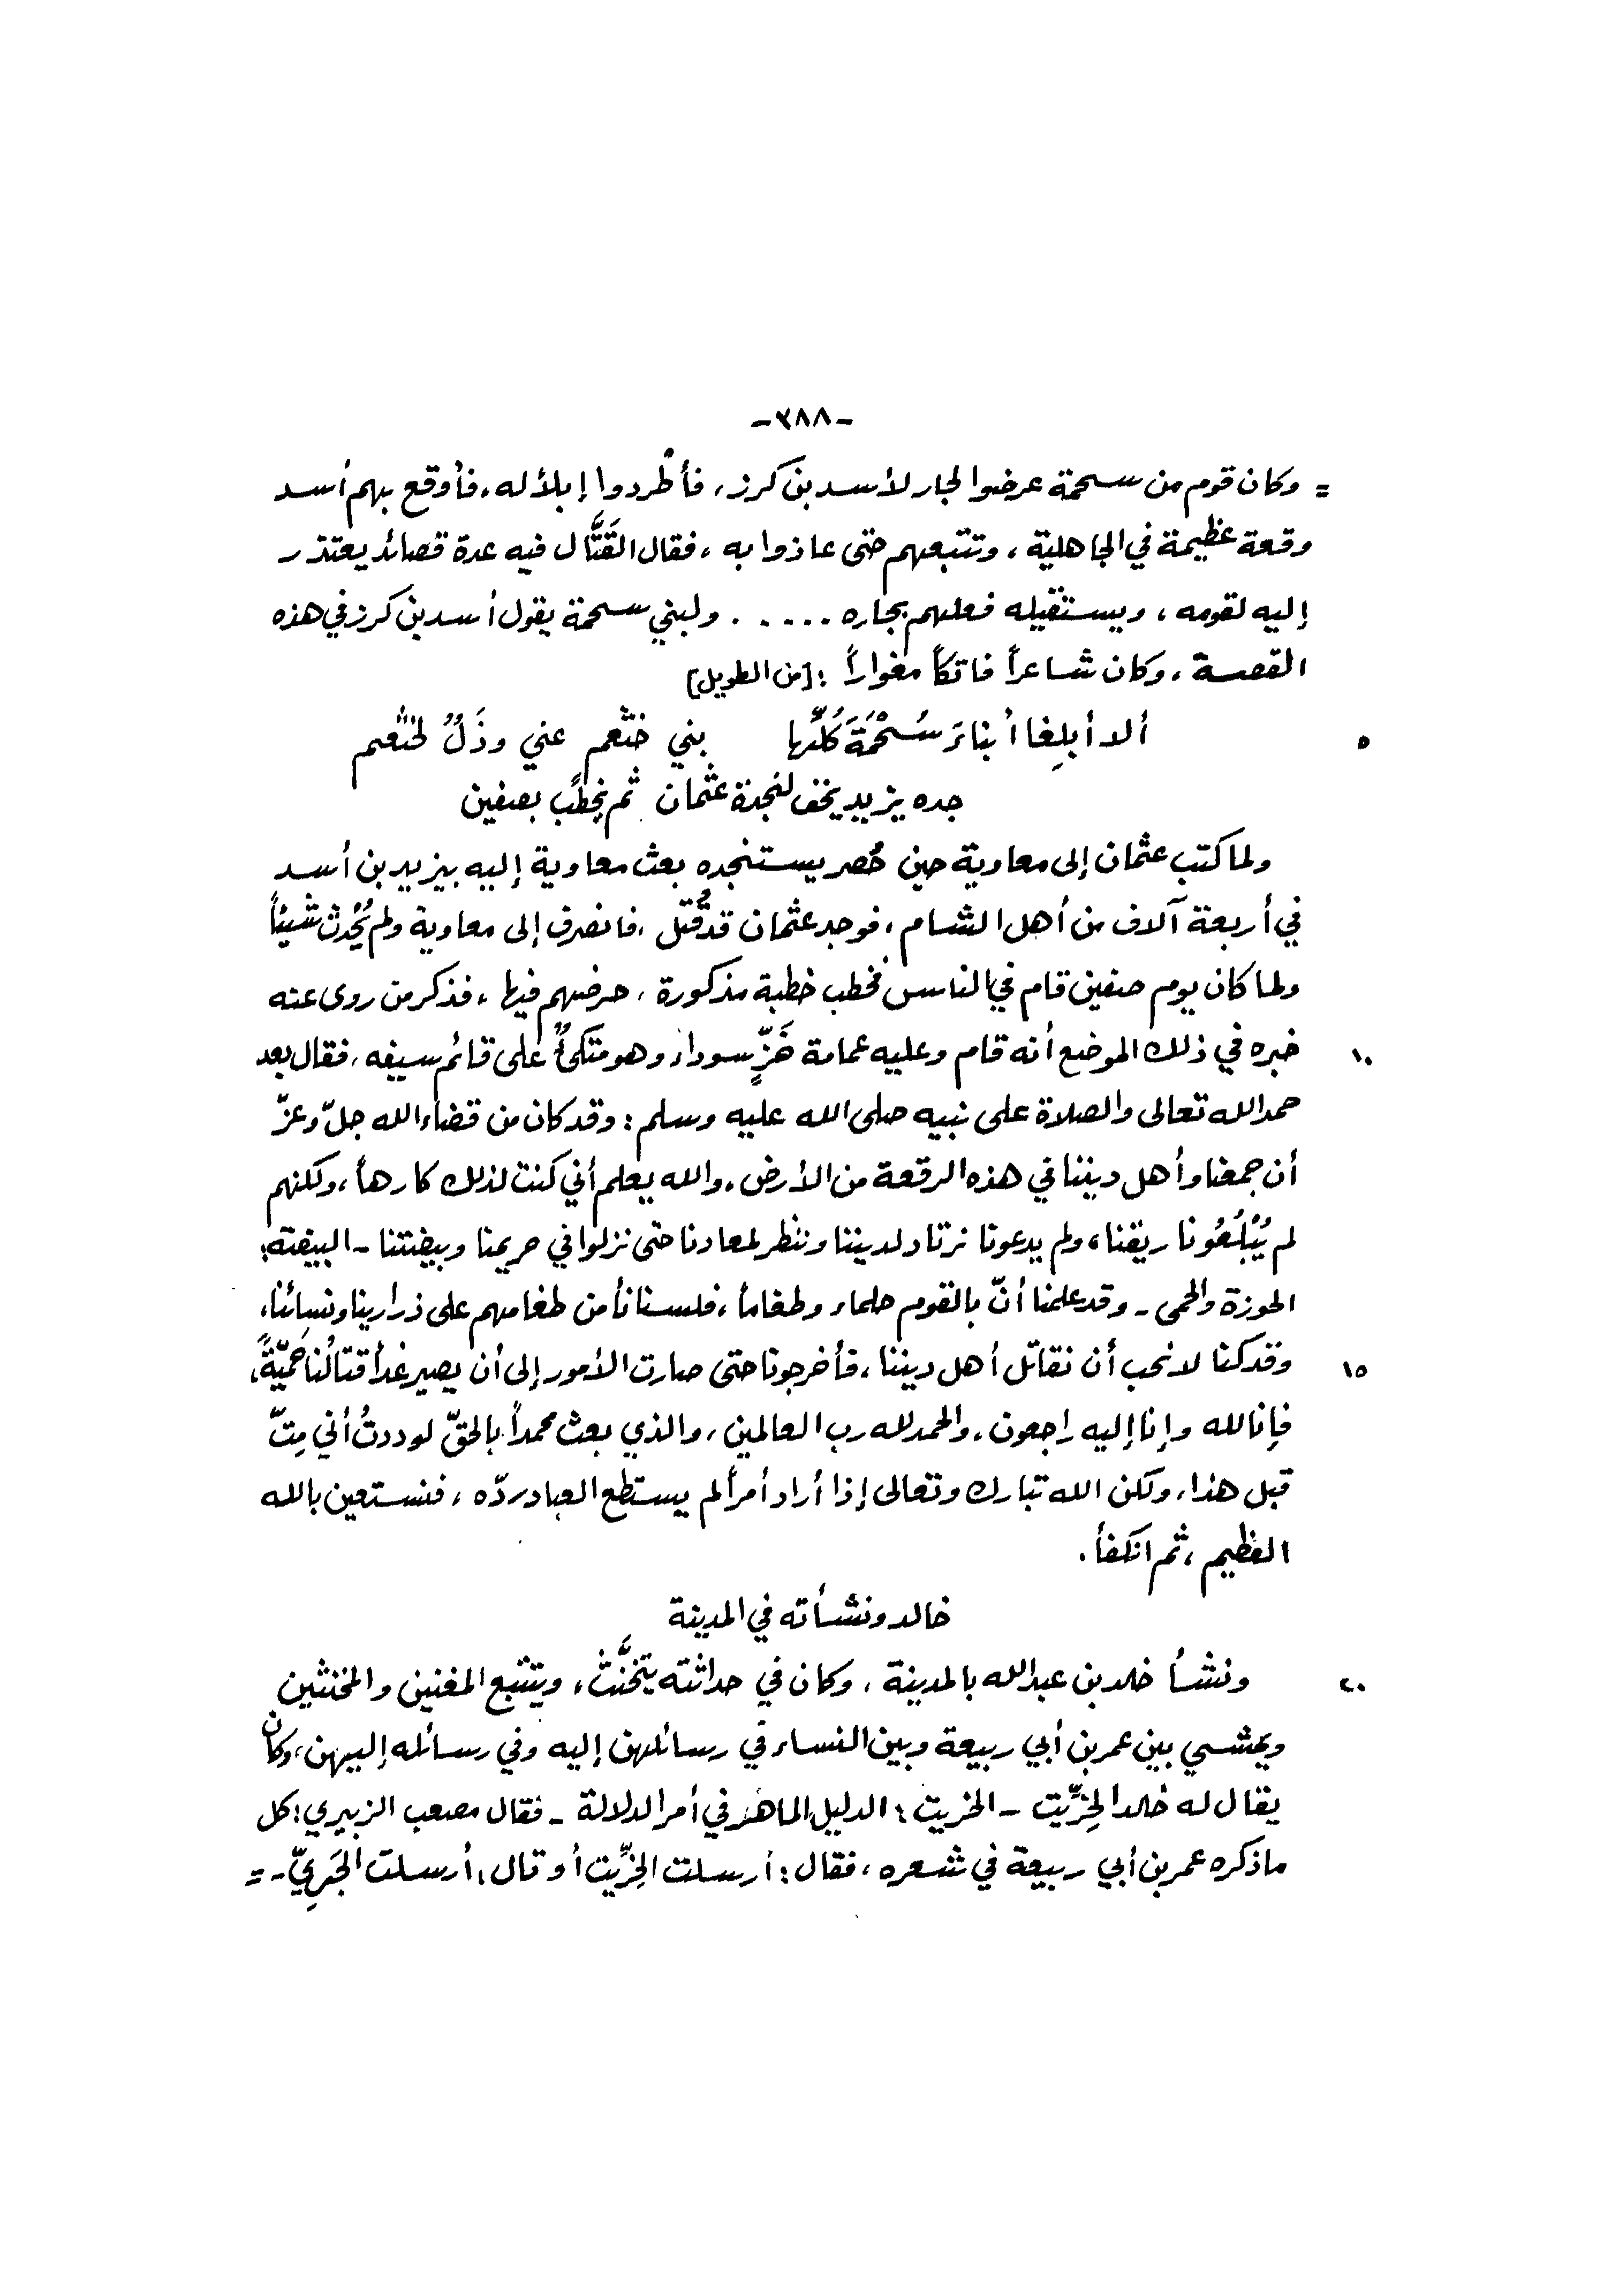 -٣٨٨-
= وكان قوم من سحمة عرضوا لجار لأسد بن كرز، فأطْردوا إبلاً له، فأوقع بهم أسد
وقعة عظيمة في الجاهلية، وتتبعهم حتى عاذوا به، فقال القَتَّال فيه عدة قصائد يعتذر
إليه لقومه، ويستقيله فعلهم بجاره ..... ولبني سحمة يقول أسد بن كرز في هذه
القصة، وكان شاعراً فاتكاً مغواراً : [من الطويل]
٥ ألا أبلِغا أبناءَ سُحْمَةَ كُلِّها بني خثعم عني وذَلٌّ لخثعم
جده يزيد يخف لنجدة عثمان ثم يخطب بصفين
ولما كتب عثمان إلى معاوية حين حُصر يستنجده بعث معاوية إليه بيزيد بن أسد
في أربعة آلاف من أهل الشام، فوجد عثمان قد قُتل، فانصرف إلى معاوية ولم يُحْدِث شيئاً
ولما كان يوم صفين قام في الناس فخطب خطبة مذكورة، حرضهم فيها، فذكر من روى عنه
١٠ خبره في ذلك الموضع أنه قام وعليه عمامة خَزٍّ سوداء وهو متكئٌ على قائم سيفه، فقال بعد
حمد الله تعالى والصلاة على نبيه صلى الله عليه وسلم : وقد كان من قضاء الله جلّ وعزّ
أن جمعنا وأهل ديننا في هذه الرقعة من الأرض، والله يعلم أني كنت لذلك كارهاً، ولكنهم
لم يُبْلِعُونا ريقنا، ولم يدعونا نرتاد لديننا وننظر لمعادنا حتى نزلوا في حريمنا وبيضتنا - البيضة:
الحوزة والحمى - وقد علمنا أنّ بالقوم حلماء وطغاماً، فلسنا نأمن طغامهم على ذرارينا ونسائنا،
١٥ وقد كنا لا نحب أن نقاتل أهل ديننا، فأخرجونا حتى صارت الأمور إلى أن يصير غداً قتالُنا حَمِيّةً،
فإنا لله وإنا إليه راجعون، والحمد لله رب العالمين، والذي بعث محمداً بالحقّ لوددتُ أني مِتّ
قبل هذا، ولكن الله تبارك وتعالى إذا أراد أمراً لم يستطع العباد ردّه، فنستعين بالله
العظيم، ثم انكفأ.
خالد ونشأته في المدينة
٢٠ ونشأ خالد بن عبد الله بالمدينة، وكان في حداثته يتخنَّث، ويتتبع المغنين والمخنثين
ويمشي بين عمر بن أبي ربيعة وبين النساء في رسائلهن إليه وفي رسائله إليهن، وكان
يقال له خالد الخِرِّيت - الخريت : الدليل الماهر في أمر الدلالة - فقال مصعب الزبيري : كل
ما ذكره عمر بن أبي ربيعة في شعره، فقال : أرسلت الخِرِّيت أو قال : أرسلت الجَرِيّ - =